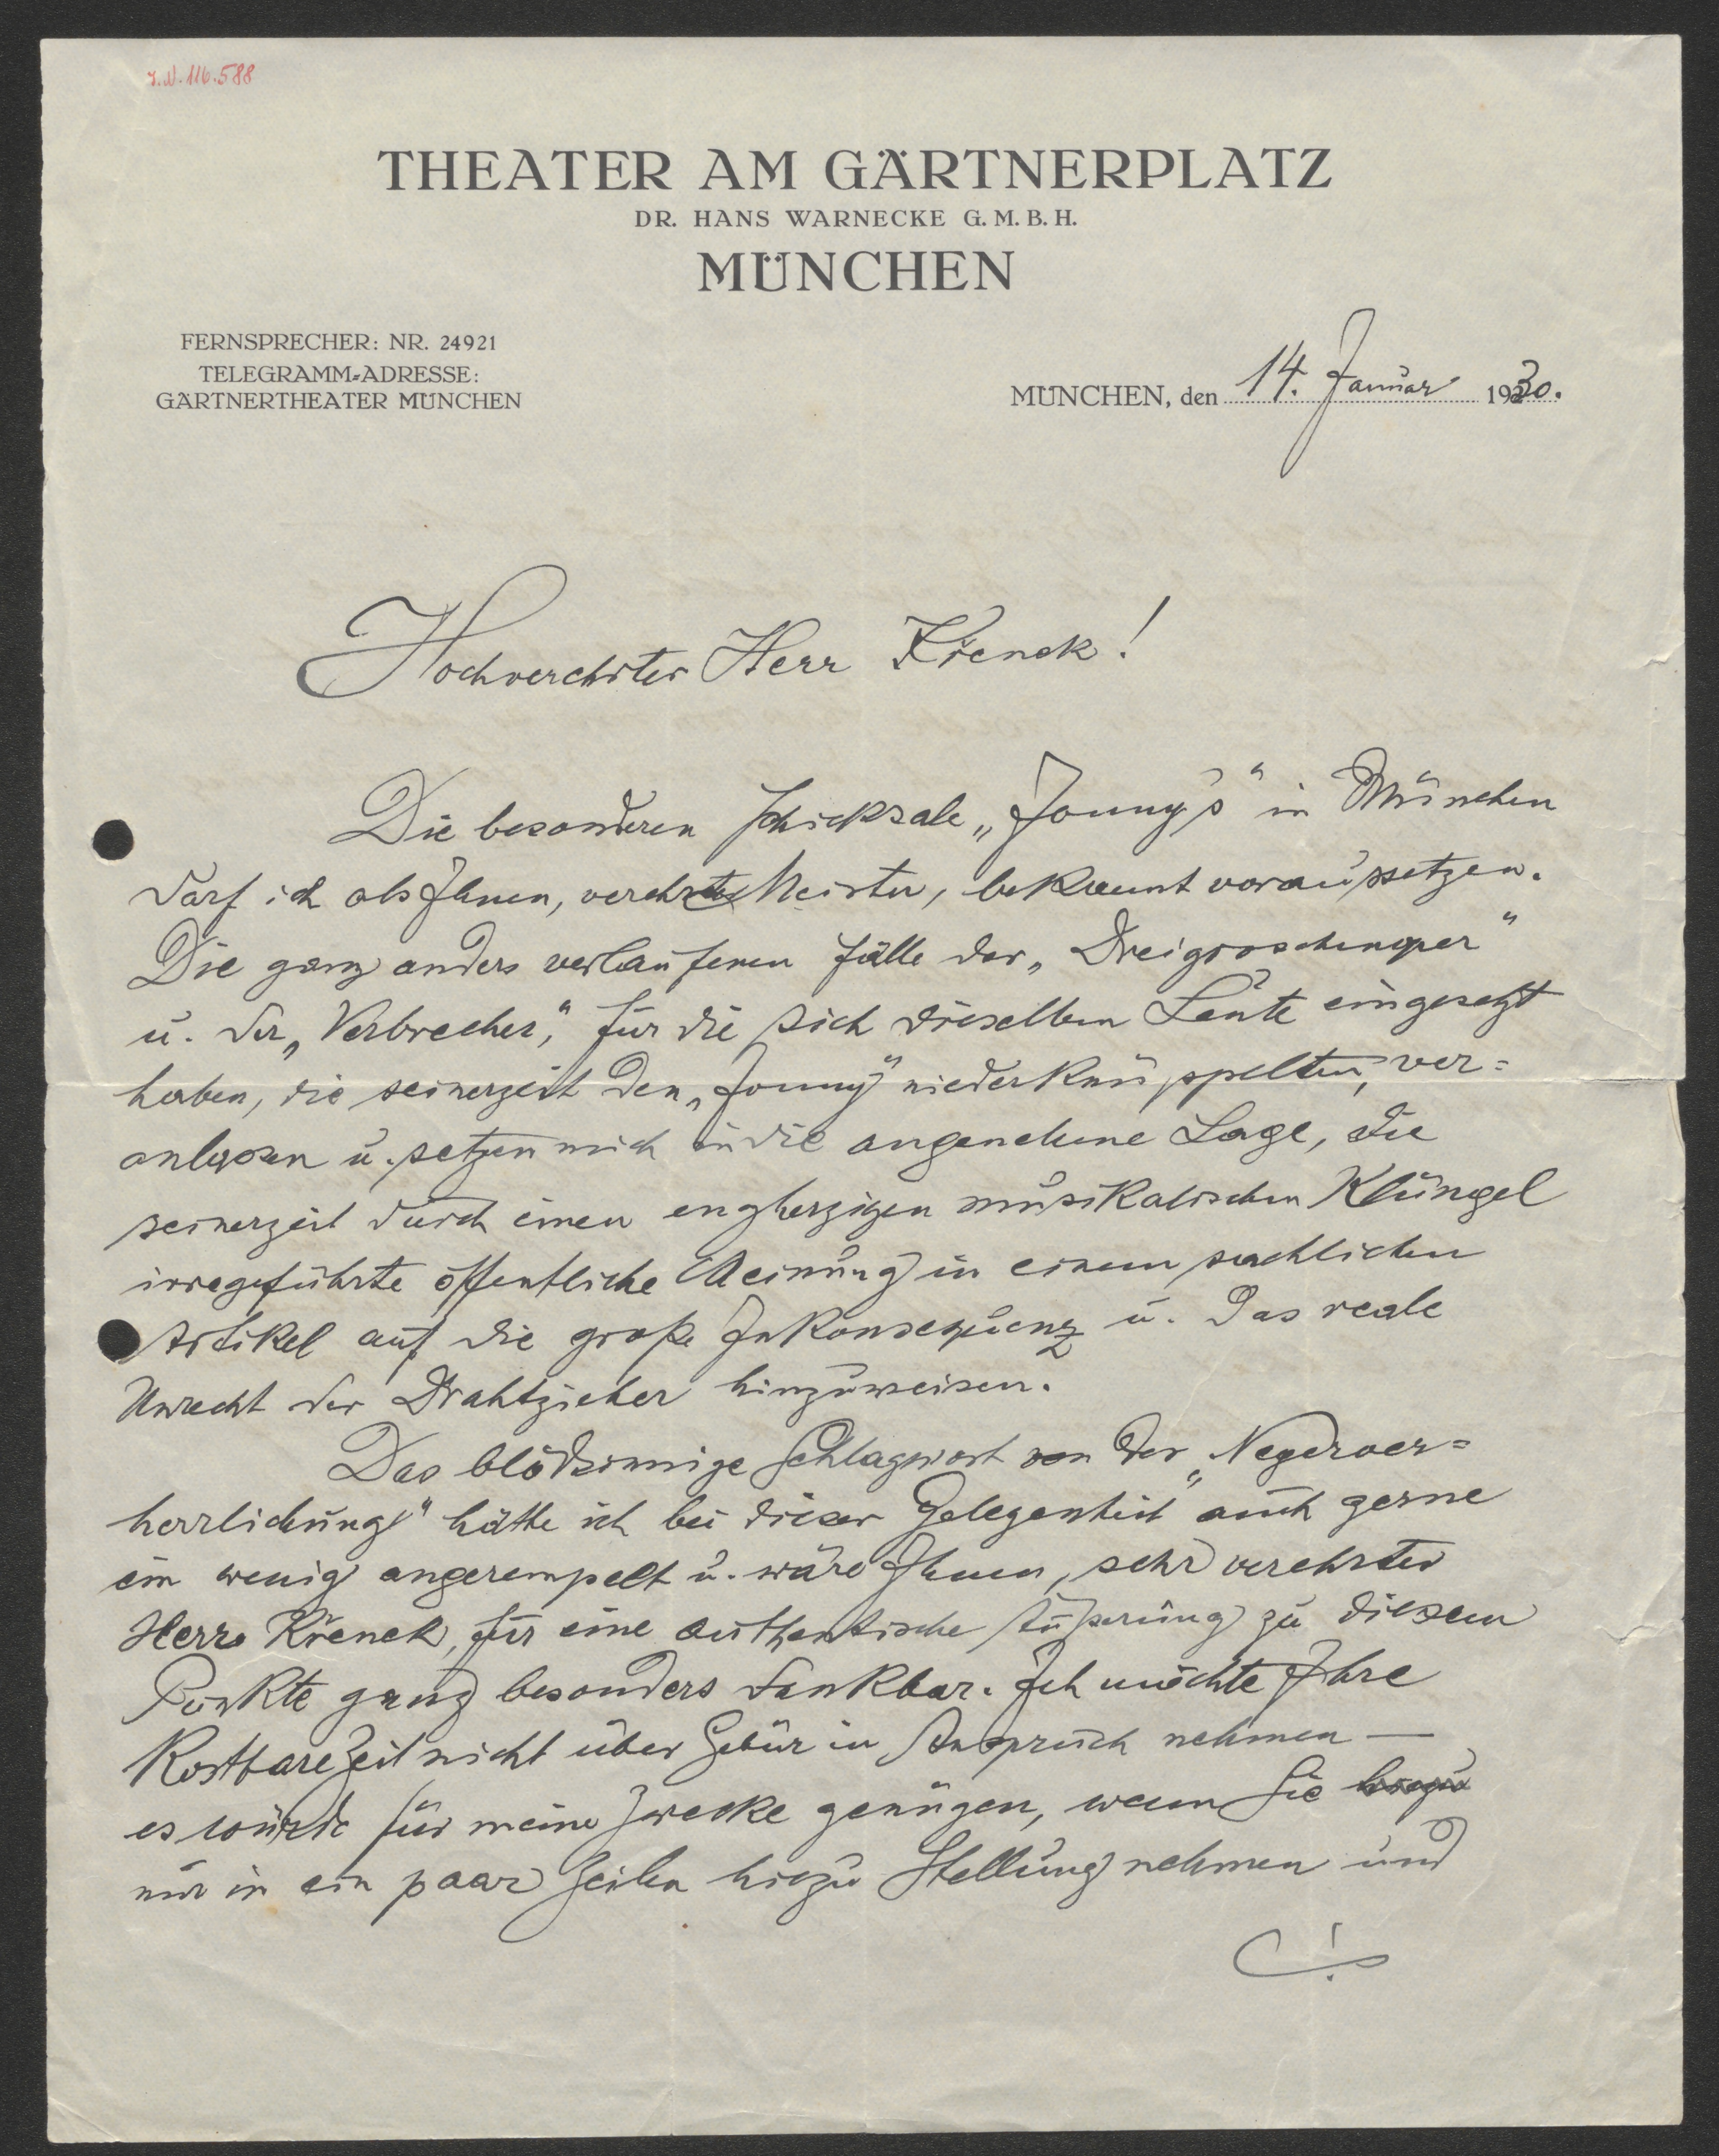 I.N. 116.588
THEATER AM GÄRTNERPLATZ
DR. HANS WARNECKE G.M.B.H.
MÜNCHEN
FERNSPRECHER: NR. 24921
TELEGRAMM-ADRESSE:
GÄRTNERTHEATER MÜNCHEN
MÜNCHEN, den 14. Januar 1930.
Hochverehrter Herr Křenek!
Die besonderen Schicksale „Jonny's“ in München
darf ich als Ihnen, verehrter Meister, bekannt voraussetzen.
Die ganz anders verlaufenen Fälle der „Dreigroschenoper“
u. der „Verbrecher“, für die sich dieselben Leute eingesetzt
haben, die seinerzeit den „Jonny“ niederknüppelten, ver=
anlassen u. setzen mich in die angenehme Lage, die
seinerzeit durch einen engherzigen musikalischen Klüngel
irregeführte öffentliche Meinung in einem sachlichen
Artikel auf die große Inkonsequenz u. das reale
Unrecht der Drahtzieher hinzuweisen.
Das blödsinnige Schlagwort von der „Negerver=
herrlichung“ hätte ich bei dieser Gelegenheit auch gerne
ein wenig angerempelt u. wäre Ihnen, sehr verehrter
Herr Křenek, für eine authentische Äußerung zu diesem
Punkte ganz besonders dankbar. Ich möchte Ihre
kostbare Zeit nicht über Gebür in Anspruch nehmen —
es würde für meine Zwecke genügen, wenn Sie
nur in ein paar Zeilen hiezu Stellung nehmen und